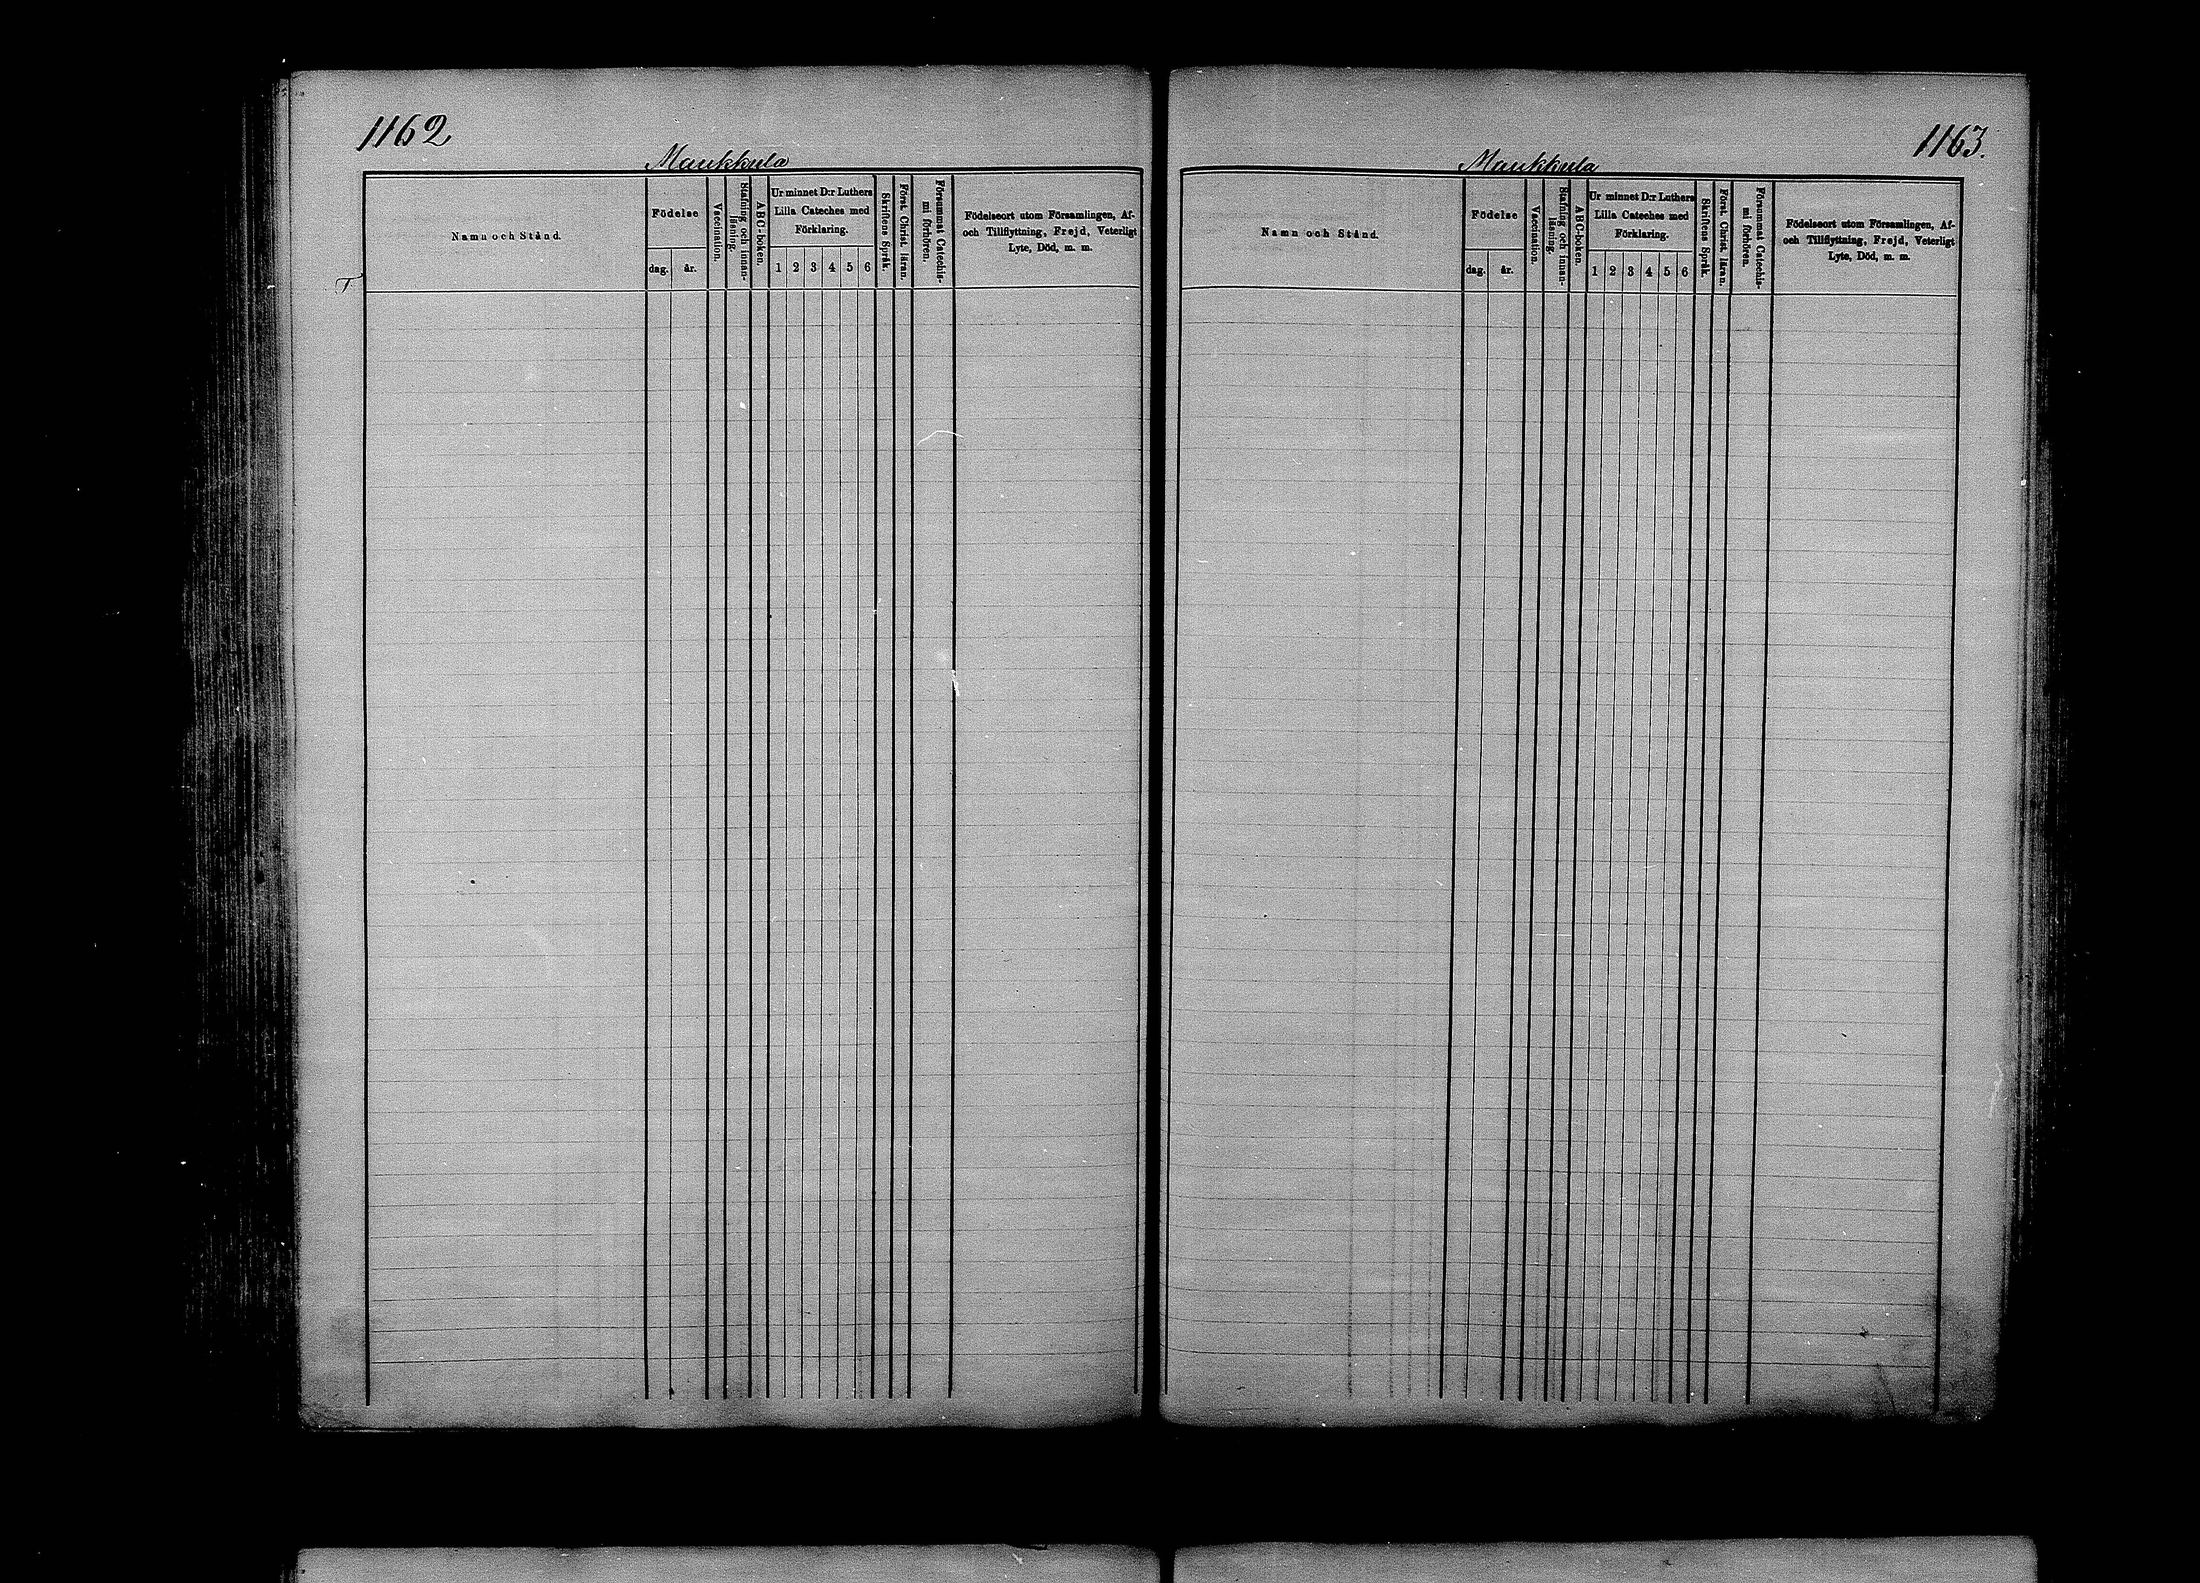 1162
Maukkula
Namn och Stånd.
Födelse
dag. år.
Vaccination.
Stafning och innan-
läsning.
ABC-boken.
Ur minnet D:r Luthers
Lilla Cateches med
Förklaring.
1 2 3 4 5 6
Skriftens Språk.
Först. Christ. läran.
Försummat Catechis-
mi förhören.
Födelseort utom Församlingen, Af-
och Tillflyttning, Frejd, Veterligt
Lyte, Död, m. m.
T
1163.
Maukkula
Namn och Stånd.
Födelse
dag. år.
Vaccination.
Stafning och innan-
läsning.
ABC-boken.
Ur minnet D:r Luthers
Lilla Cateches med
Förklaring.
1 2 3 4 5 6
Skriftens Språk.
Först. Christ. läran.
Försummat Catechis-
mi förhören.
Födelseort utom Församlingen, Af-
och Tillflyttning, Frejd, Veterligt
Lyte, Död, m. m.